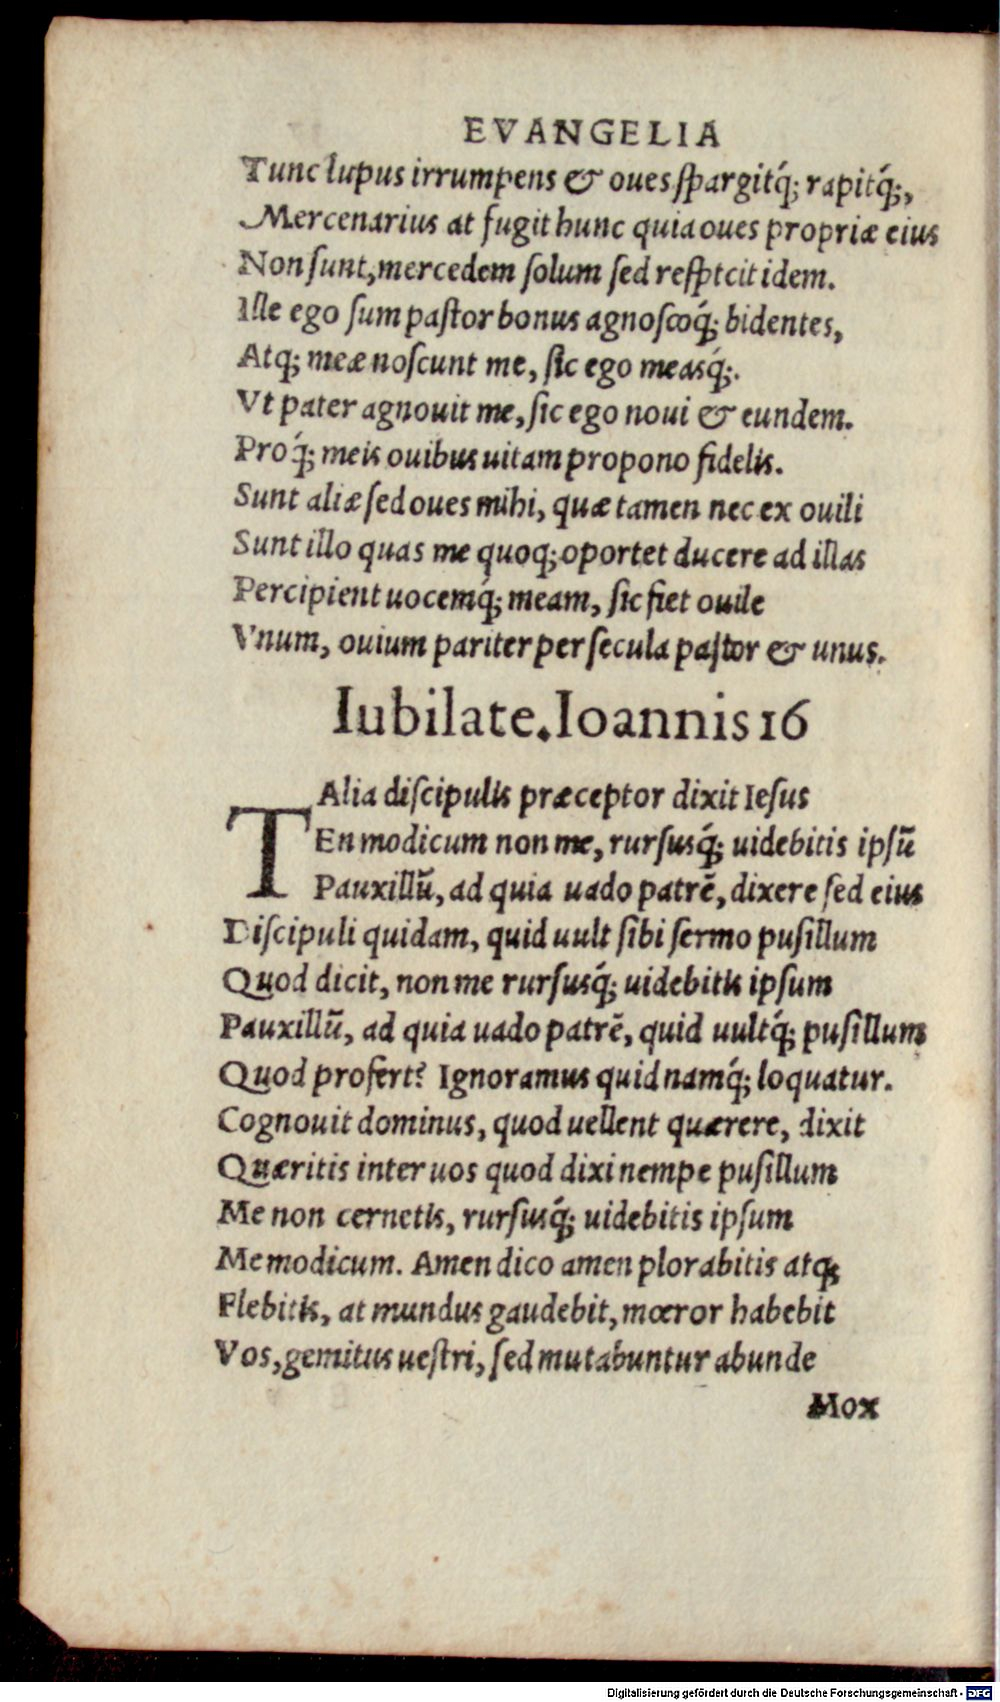 EVANGELIA
Tunc lupus irrumpens & oues ſpargitq́; rapitq́;,
Mercenarius at fugit hunc quia oues propriæ eius
Non ſunt, mercedem ſolum ſed reſptcit idem.
Ille ego ſum paſtor bonus agnoſcoq́; bidentes,
Atq; meæ noſcunt me, ſic ego measq́;.
Vt pater agnouit me, ſic ego noui & eundem.
Proq́; meis ouibus uitam propono fidelis.
Sunt aliæ ſed oues mihi, quæ tamen nec ex ouili
Sunt illo quas me quoq; oportet ducere ad illas
Percipient uocemq́; meam, ſic fiet ouile
Vnum, ouium pariter per ſecula paſtor & unus.
Iubilate. Ioannis 16
TAlia diſcipulis præceptor dixit Ieſus
En modicum non me, rurſusq́; uidebitis ipſũ
Pauxillũ, ad quia uado patrẽ, dixere ſed eius
Diſcipuli quidam, quid uult ſibi ſermo puſillum
Quod dicit, non me rurſusq́; uidebitis ipſum
Pauxillũ, ad quia uado patrẽ, quid uultq́; puſillum
Quod profert? Ignoramus quid namq́; loquatur.
Cognouit dominus, quod uellent quærere, dixit
Quæritis inter uos quod dixi nempe puſillum
Me non cernetis, rurſusq́; uidebitis ipſum
Me modicum. Amen dico amen plorabitis atq;
Flebitis, at mundus gaudebit, mœror habebit
Vos, gemitus ueſtri, ſed mutabuntur abunde
Mox
Digitalisierung gefördert durch die Deutsche Forschungsgemeinschaft - DFG